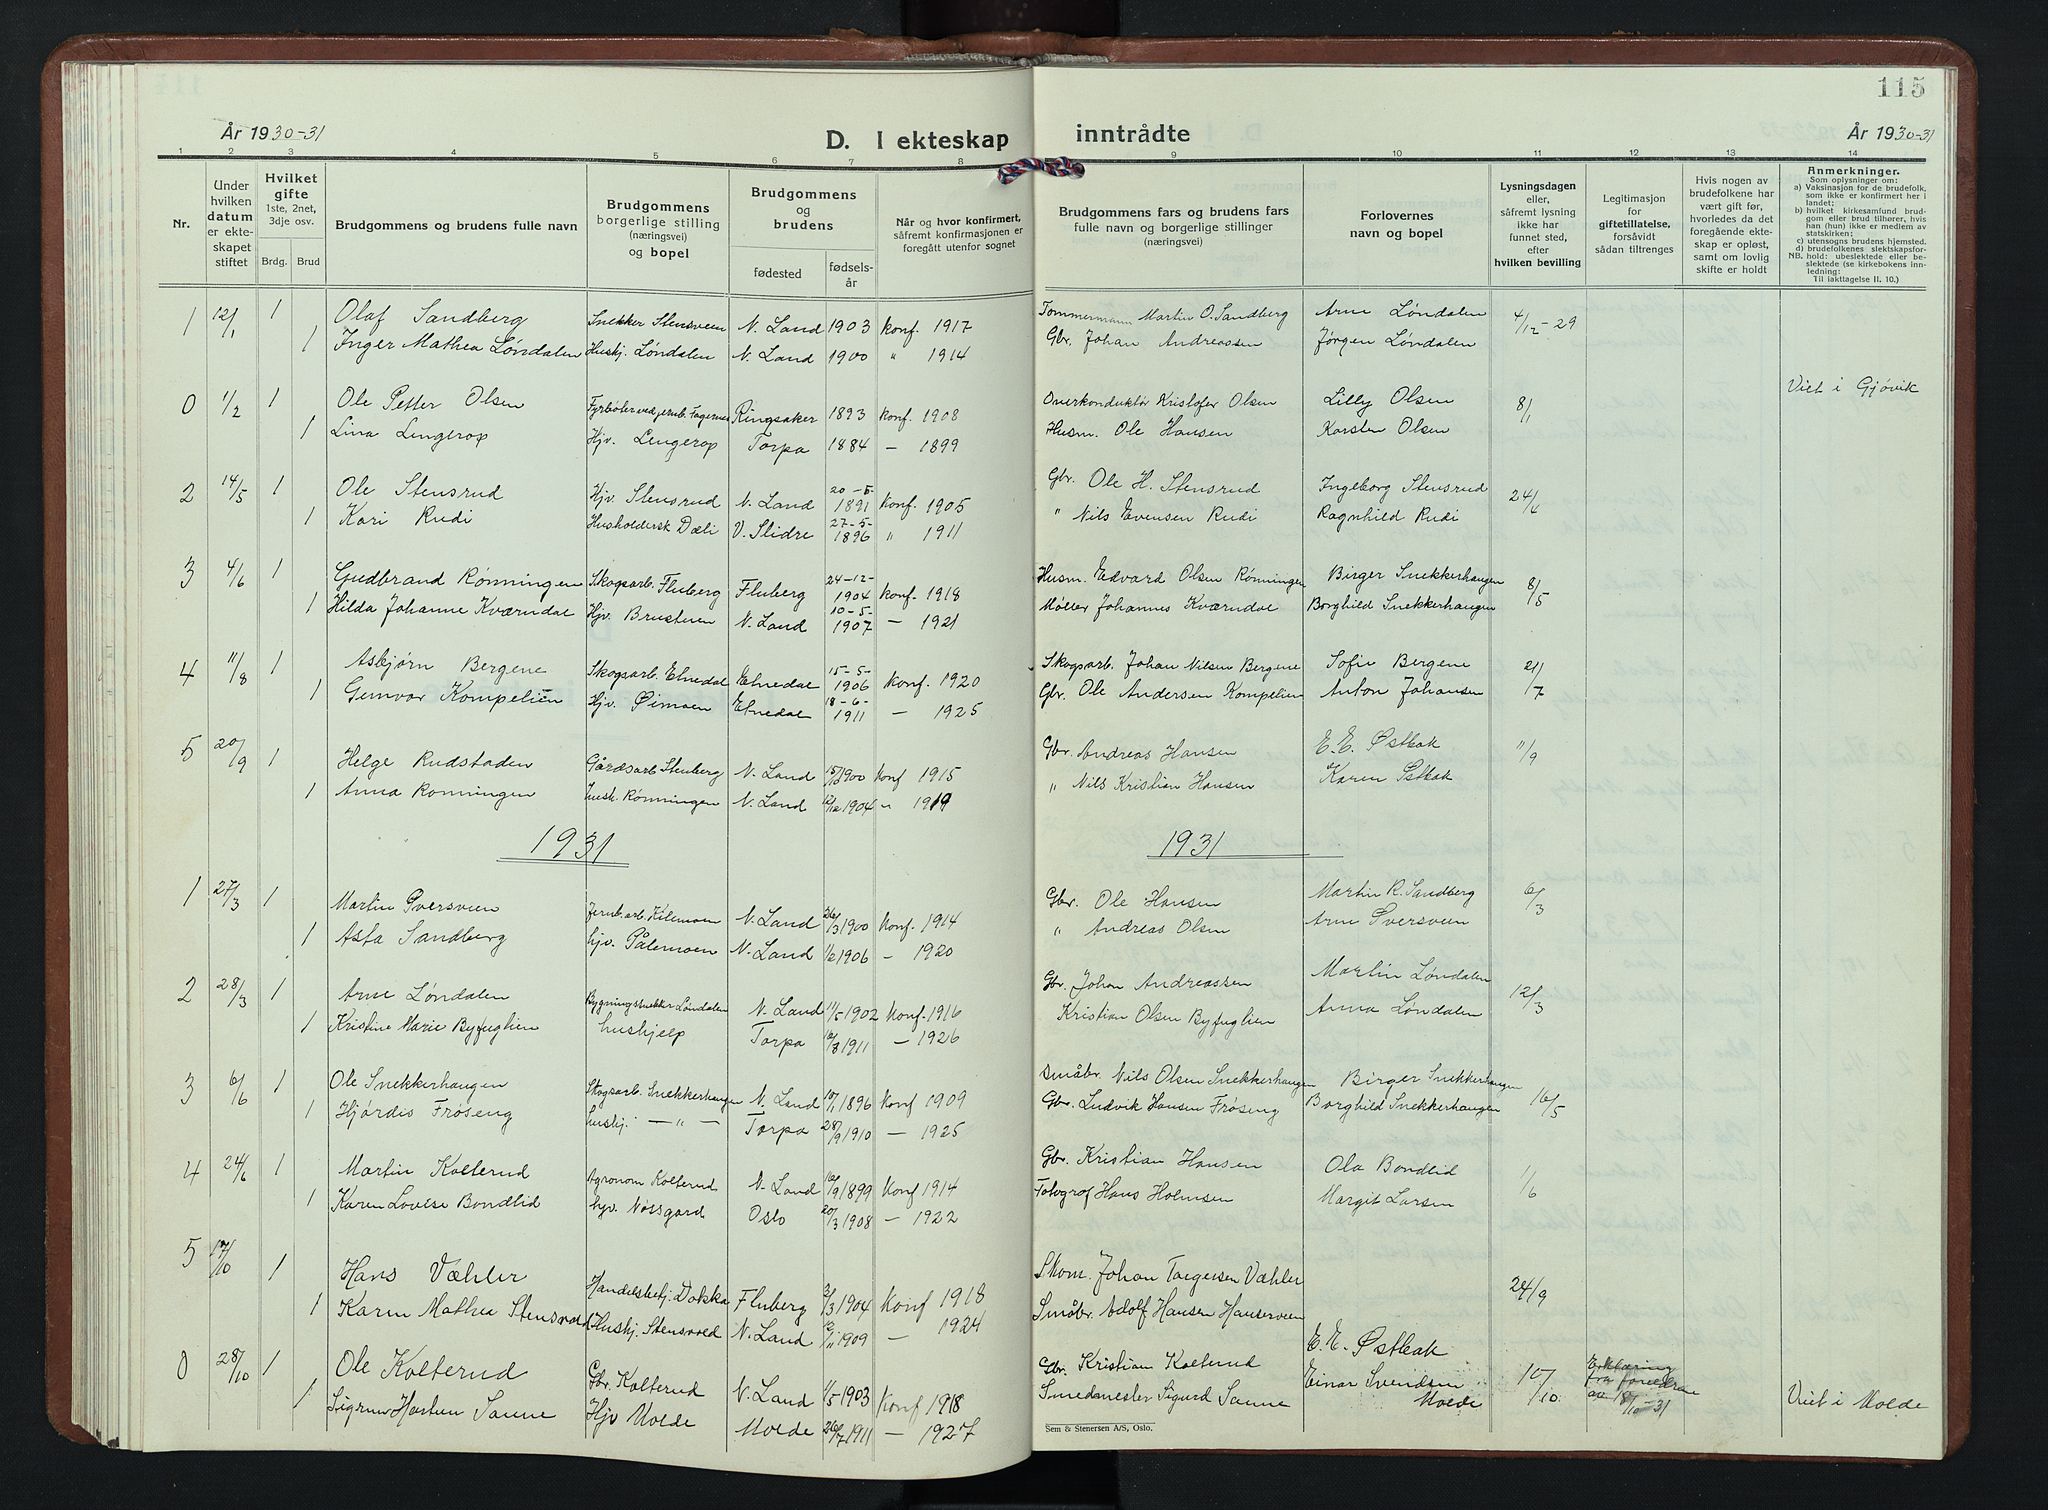 115
År 1930-31
D. I ekteskap inntrådte
År 1930-31
1 2 3 4 5 6 7 8 9 10 11 12 13 14
Nr.
Under hvilken datum er ekteskapet stiftet
Hvilket gifte 1ste, 2net, 3dje osv.
Brdg. Brud
Brudgommens og brudens fulle navn
Brudgommens borgerlige stilling (næringsvei) og bopel
Brudgommens og brudens
fødested
fødselsår
Når og hvor konfirmert, såfremt konfirmasjonen er foregått utenfor sognet
Brudgommens fars og brudens fars fulle navn og borgerlige stillinger (næringsvei)
Forlovernes navn og bopel
Lysningsdagen eller, såfremt lysning ikke har funnet sted, efter hvilken bevilling
Legitimasjon for giftetillatelse, forsåvidt sådan tiltrenges
Hvis nogen av brudefolkene har vært gift før, hvorledes da det foregående ekteskap er opløst, samt om lovlig skifte er holdt
Anmerkninger.
Som oplysninger om:
a) Vaksinasjon for de brudefolk, som ikke er konfirmert her i landet;
b) hvilket kirkesamfund brudgom eller brud tilhører, hvis han (hun) ikke er medlem av statskirken;
c) utensogns brudens hjemsted.
d) brudefolkenes slektskapsforhold: ubeslektede eller beslektede (se kirkebokens innledning:
NB. Til iakttagelse II. 10.)
1 12/1 1 Olaf Sandberg Snekker Stensveen N. Land 1903 konf. 1917 Tømmermann Martin O. Sandberg Arne Løndalen 4/12-29
1 Inger Mathea Løndalen Hushj. Løndalen N. Land 1900 " 1914 Gbr. Johan Andreassen Jørgen Løndalen
0 1/2 1 Ole Petter Olsen Fyrbøter ved jernb. Fagernes Ringsaker 1893 konf. 1908 Overkonduktør Kristofer Olsen Lilly Olsen 8/1 Viet i Gjøvik
1 Lina Lengerop Hjv. Lengerop Torpa 1884 - 1899 Husm. Ole Hansen Karsten Olsen
2 14/5 1 Ole Stensrud Hjv. Stensrud N. Land 20-5-1891 konf. 1905 Gbr. Ole H. Stensrud Ingeborg Stensrud 24/4
1 Kari Rudi Husholdersk Dæli V. Slidre 27-5-1896 " 1911 " Nils Evensen Rudi Ragnhild Rudi
3 4/6 1 Gudbrand Rønningen Skogsarb. Fluberg Fluberg 24-12-1904 konf. 1918 Husm. Edvard Olsen Rønningen Birger Snekkerhaugen 8/5
1 Hilda Johanne Kværndal Hjv. Brustuen N. Land 10-5-1907 - 1921 Møller Johannes Kværndal Borghild Snekkerhaugen
4 11/8 1 Asbjørn Bergene Skogsarb. Etnedal Etnedal 15-5-1906 konf. 1920 Skogsarb. Johan Nilsen Bergene Sofie Bergene 21/7
1 Gunvor Kompelien Hjv. Øimoen Etnedal 18-6-1911 - 1925 Gbr. Ole Andersen Kompelien Anton Johansen
5 20/9 1 Helge Rudstaden Gårdsarb Stenberg N. Land 15/10 1900 konf 1915 Gbr. Andreas Hansen E. E. Østbak 11/9
1 Anna Rønningen hush. Rønningen N. Land 12/12 1904 " 1919 " Nils Kristian Hansen Karen Østbak
1931 1931
1 27/3 1 Martin Sversveen Jernb.arb. Kilemoen N. Land 26/3 1900 konf. 1914 Gbr. Ole Hansen Martin R. Sandberg 6/3
1 Asta Sandberg hjv. Pålemoen N. Land 1/2 1906 - 1920 " Andreas Olsen Arne Sversveen
2 28/3 1 Arne Løndalen Bygningssnekker Løndalen N. Land 11/5 1902 konf. 1916 Gbr. Johan Andreassen Martin Løndalen 12/3
1 Kristine Marie Byfuglien hushjelp Torpa 16/8 1911 - 1926 Kristian Olsen Byfuglien Anna Løndalen
3 6/6 1 Ole Snekkerhaugen Skogsarb. Snekkerhaugen N. Land 15/1 1896 konf 1909 Småbr. Nils Olsen Snekkerhaugen Birger Snekkerhaugen 16/5
1 Hjørdis Frøseng hushj. - " - Torpa 28/9 1910 - 1925 Gbr. Ludvik Hansen Frøseng Borghild Snekkerhaugen
4 24/6 1 Martin Kolterud Agronom Kolterud N. Land 16/9 1899 konf 1914 Gbr. Kristian Hansen Ola Bondlid 1/6
1 Karen Lovise Bondlid hjv. Nøssgard Oslo 20/3 1908 - 1922 Fotograf Hans Holmsen Margit Larsen
5 17/10 1 Hans Væhler Handelsbetj. Dokka Fluberg 2/3 1904 konf 1918 Skom. Johan Torgersen Væhler 24/9
1 Karen Mathea Stensvold Hushj. Stensvold N. Land 12/11 1909 - 1924 Småbr. Adolf Hansen Hanserveen
E. E. Østbak
0 28/10 1 Ole Kolterud Gbr. Kolterud N. Land 1/5 1903 konf 1918 Gbr. Kristian Kolterud Einar Svendsen Molde 10/10 Erklæring fra foreldrene av 18/10-31 Viet i Molde
1 Sigrun Hasten Sanne Hjv Molde Molde 26/7 1911 - 1927 Smedmester Sigurd Sanne
Sem & Stenersen A/S, Oslo.